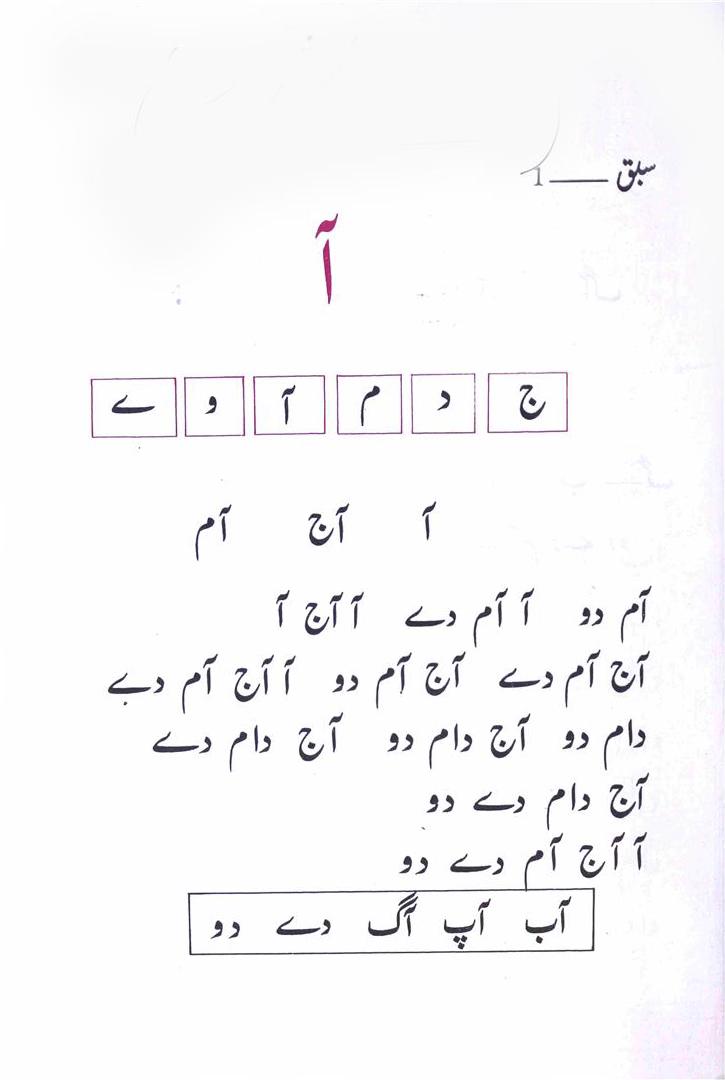 سبق ــــ 1
آ
ج د م آ و ے
آ آج آم
آم دو آ آم دے آ آج آ
آج آم دے آج آم دو آ آج آم دے
دام دو آج دام دو آج دام دے
آج دام دے دو
آ آج آم دے دو
آب آپ آگ دے دو